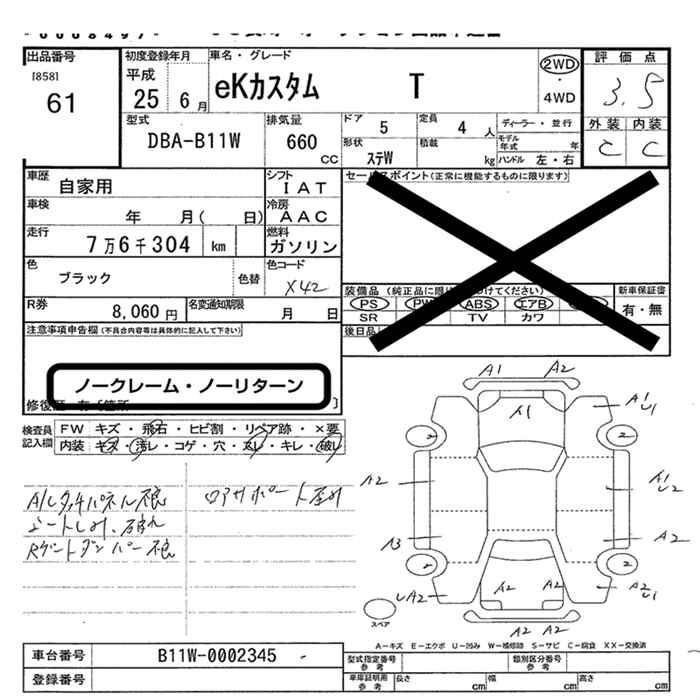 出品番号
[858]
61
初度登録年月
平成
25 6月
車名・グレード
eKカスタム T
2WD
・
4WD
評価点
3.5
外装 内装
C C
型式
DBA-B11W
排気量
660
CC
ドア
5
定員
4 人
形状
ステW
積載
kg
ディーラー・並行
モデル年式 年
ハンドル 左・右
車歴
自家用
シフト
IAT
車検
年 月( 日)
冷房
AAC
走行
7万6千304 km
燃料
ガソリン
色
ブラック
色替
色コード
X42
R券
8,060円
名変通知期限
月 日
セールスポイント(正常に機能するものに限ります)
PS ABS エアB
SR TV カワ
新車保証書
有・無
注意事項申告欄(不具合内容等は具体的に記入して下さい)
ノークレーム・ノーリターン
検査員記入欄
FW キズ・飛石・ヒビ割・リペア跡・×要
内装 キズ・汚レ・コゲ・穴・スレ・キレ・破レ
A/Cタッチパネル不良
シートしみ、破れ
Rゲートダンパー不良
ロアサポート歪み
A1 A2
A1
A1
U1
2 2
A2
A1
U2
A3
A2
2 2
UA2
A2 A2
A2
U1
A2 A2
スペア
A-キズ E-エクボ U-凹み W-補修跡 S-サビ C-腐食 XX-交換済
車台番号
B11W-0002345
登録番号
型式指定番号
参考
類別区分番号
参考
車庫証明用
参考
長さ cm
幅 cm
高さ cm